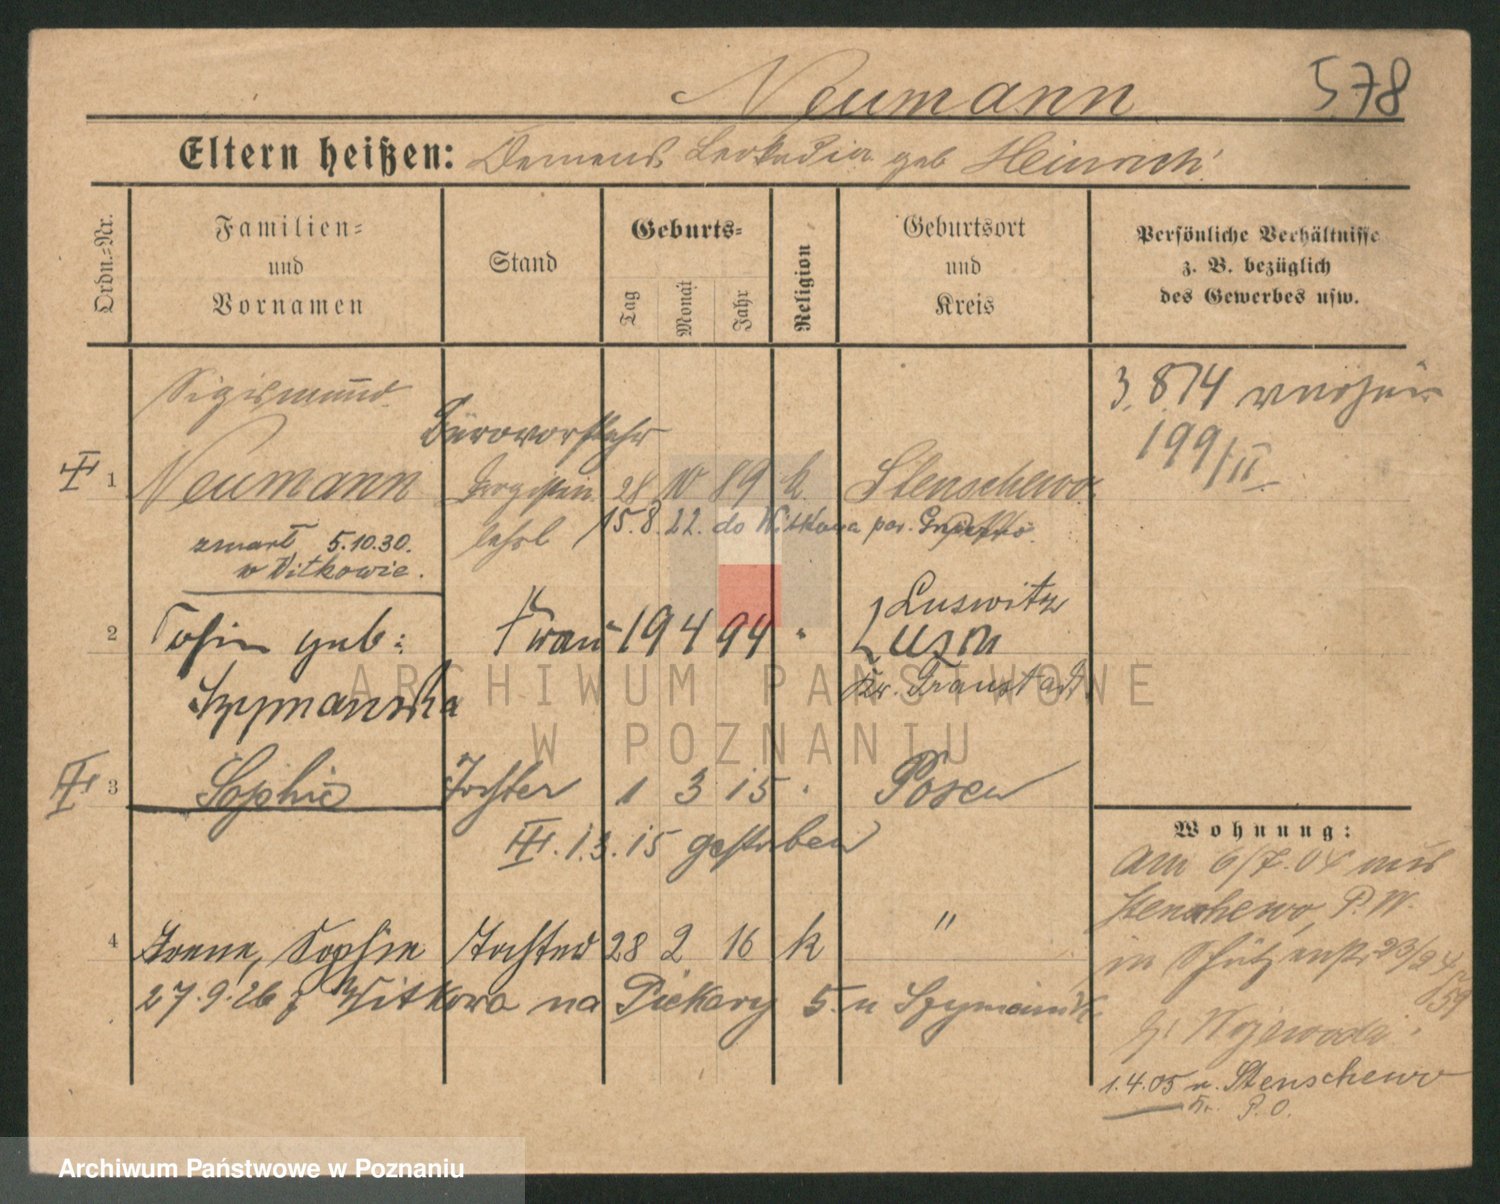 Neumann 578
Eltern heißen: Clemens Leokadia geb Heinrich
Ordn.=Nr.
Familien=
und
Vornamen
Stand
Geburts=
Tag
Monat
Jahr
Religion
Geburtsort
und
Kreis
Persönliche Verhältnisse
z. B. bezüglich
des Gewerbes usw.
Sigismund
3.8.14
Bürovorsteher
199/II
1 Neumann 28 10 89 k Stenschewo
lehrl 15.8.22. do Witkowa pow.
zmarł 5.10.30.
w Witkowie.
Luswitz
2 Sofie geb: Frau 19 4 94 " Luszn
Szymanska Kr. Fraustadt
3 Sophie Tochter 1 3 15 Posen
1.3.15 gestorben
Wohnung:
am 6/7.04 aus
Stenschewo, P. W.
4 Irene, Sophie Tochter 28 2 16 k "
in Schützenstr 23/24
27.9.26 z Witkowa na Piekary 5. u
Wojewoda
1.4.05 n. Stenschewo
Kr. P. O.
ARCHIWUM PAŃSTWOWE
W POZNANIU
Archiwum Państwowe w Poznaniu